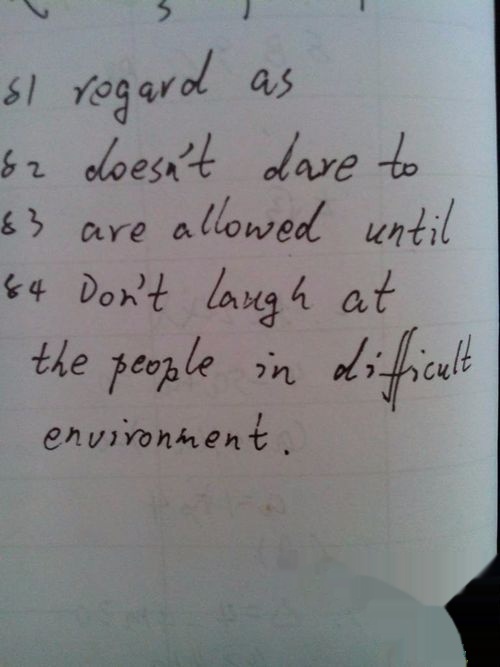 81 regard as
82 doesn't dare to
83 are allowed until
84 Don't laugh at
the people in difficult
environment.